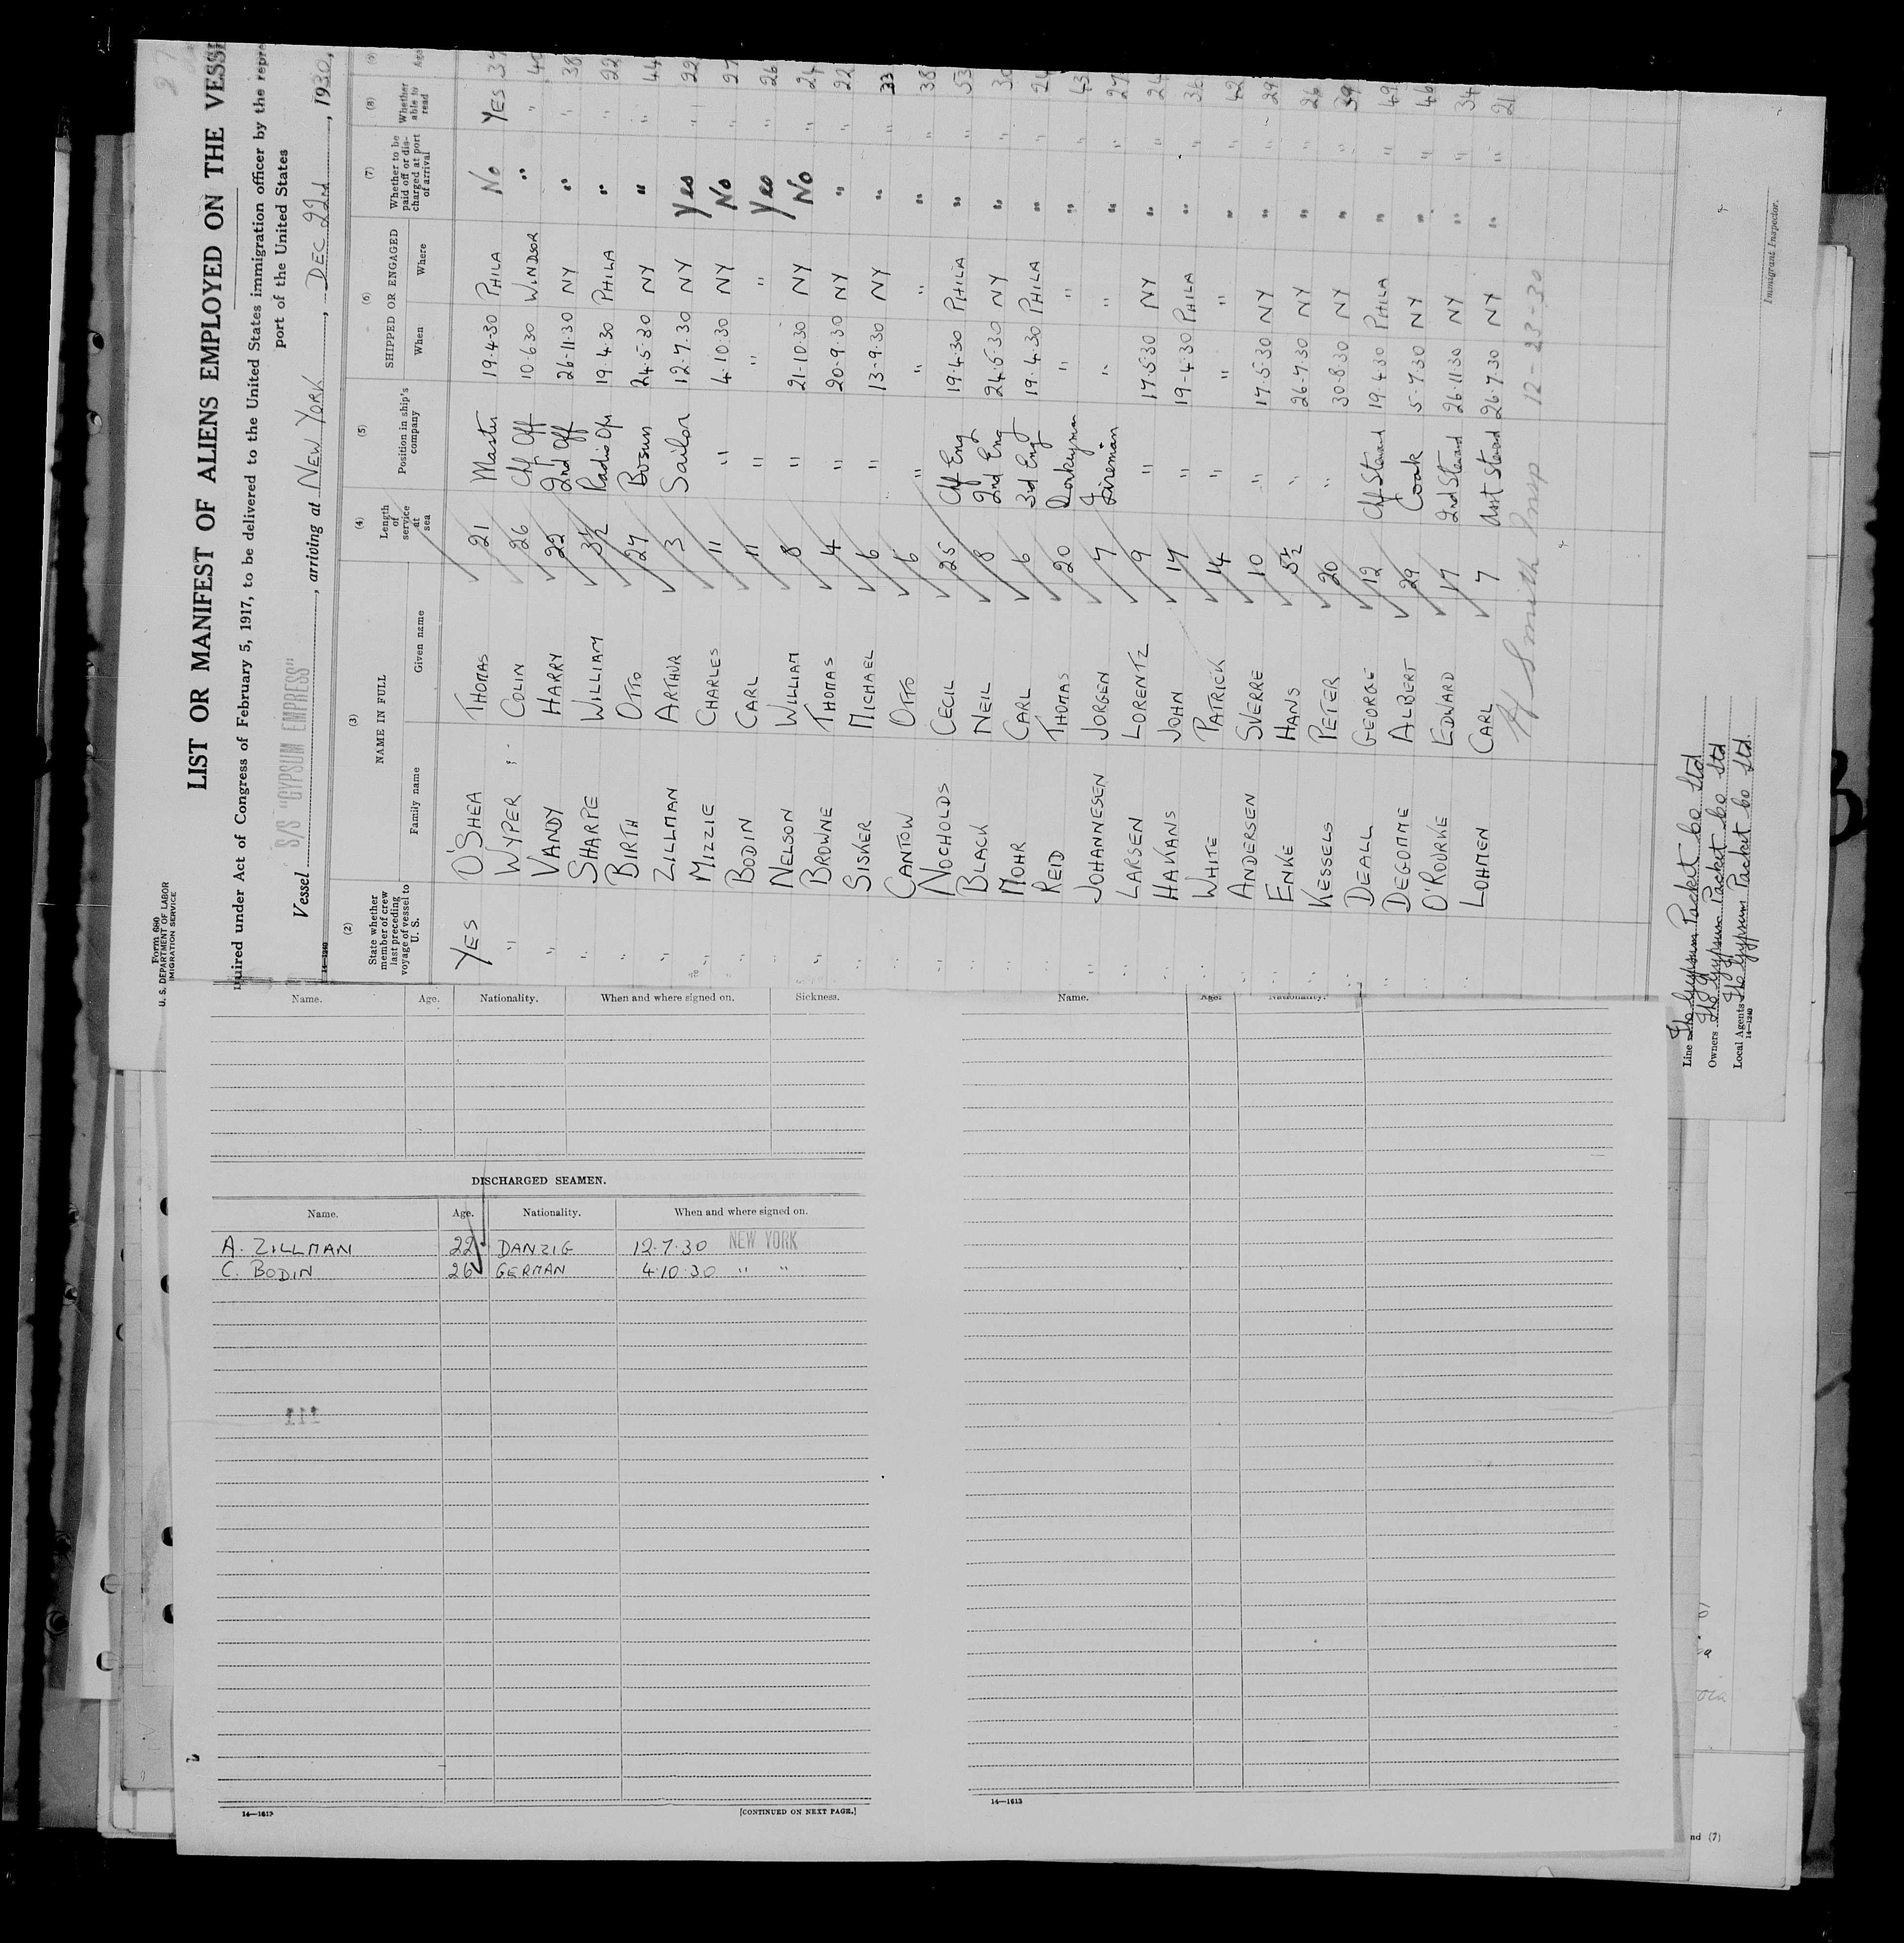 Form 680
U. S. DEPARTMENT OF LABOR
IMIGRATION SERVICE
LIST OR MANIFEST OF ALIENS EMPLOYED ON THE VESSE
uired under Act of Congress of February 5, 1917, to be delivered to the United States immigration officer by the repre
port of the United States
Vessel S/S "GYPSUM EMPRESS", arriving at NEW YORK, DEC 22nd, 1930,
14—1240
(2) (3) (4) (5) (6) (7) (8) (9)
State whether member of crew last preceding voyage of vessel to U. S. NAME IN FULL Length of service at sea Position in ship's company SHIPPED OR ENGAGED Whether to be paid off or discharged at port of arrival Whether able to read Age
Family name Given name When Where
YES O'SHEA THOMAS 21 Master 19-4-30 PHILA No YES 37
" WYPER COLIN 26 Chf Off 10-6-30 WINDSOR " " 40
" VANDY HARRY 22 2nd Off 26-11-30 NY " " 38
" SHARPE WILLIAM 3½ Radio Opr 19.4.30 PHILA " " 22
" BIRTH OTTO 27 Bosun 24.5.30 NY " " 44
" ZILLMAN ARTHUR 3 Sailor 12.7.30 NY Yes " 22
" MIZZIE CHARLES 11 " 4.10.30 NY No " 27
" BODIN CARL 11 " " " Yes " 26
" NELSON WILLIAM 8 " 21-10-30 NY No " 24
" BROWNE THOMAS 4 " 20-9-30 NY " " 22
" SISKER MICHAEL 6 " 13-9-30 NY " " 33
" CANTOW OTTO 6 " " " " " 38
" NOCHOLDS CECIL 25 Chf Eng 19.4.30 PHILA " " 53
" BLACK NEIL 8 2nd Eng 24.5.30 NY " " 30
" MOHR CARL 6 3rd Eng 19.4.30 PHILA " " 24
" REID THOMAS 20 Donkeyman " " " " 43
" JOHANNESEN JORGEN 7 Fireman " " " " 27
" LARSEN LORENTZ 9 " 17.5.30 NY " " 24
" HAKANS JOHN 17 " 19-4-30 PHILA " " 36
" WHITE PATRICK 14 " " " " " 42
" ANDERSEN SVERRE 10 " 17.5.30 NY " " 29
" ENKE HANS 5½ " 26-7-30 NY " " 26
" KESSELS PETER 20 " 30-8-30 NY " " 39
" DEALL GEORGE 12 Chf Steward 19.4.30 PHILA " " 49
" DEGOMME ALBERT 29 Cook 5-7-30 NY " " 46
" O'ROURKE EDWARD 17 2nd Steward 26-11-30 NY " " 34
" LOHMEN CARL 7 Asst Steward 26-7-30 NY " " 21
Smith Insp 12-23-30
Line The Gypsum Packet Co Ltd
Owners The Gypsum Packet Co Ltd
Local Agents The Gypsum Packet Co Ltd.
14—1240
Immigrant Inspector.
Name. Age. Nationality. When and where signed on. Sickness.
DISCHARGED SEAMEN.
Name. Age. Nationality. When and where signed on.
A. ZILLMAN 22 DANZIG 12.7.30 NEW YORK
C. BODIN 26 GERMAN 4.10.30 " "
111
14—1613
[CONTINUED ON NEXT PAGE.]
Name. Age. Nationality.
14—1613
nd (7)